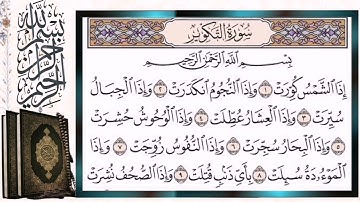 سُورَةُ التَّكْوِيرِ
بِسْمِ اللَّهِ الرَّحْمَٰنِ الرَّحِيمِ
إِذَا الشَّمْسُ كُوِّرَتْ ١ وَإِذَا النُّجُومُ انكَدَرَتْ ٢ وَإِذَا الْجِبَالُ
سُيِّرَتْ ٣ وَإِذَا الْعِشَارُ عُطِّلَتْ ٤ وَإِذَا الْوُحُوشُ حُشِرَتْ
٥ وَإِذَا الْبِحَارُ سُجِّرَتْ ٦ وَإِذَا النُّفُوسُ زُوِّجَتْ ٧ وَإِذَا
الْمَوْءُۥدَةُ سُئِلَتْ ٨ بِأَيِّ ذَنبٍ قُتِلَتْ ٩ وَإِذَا الصُّحُفُ نُشِرَتْ
بسم الله الرحمن الرحيم